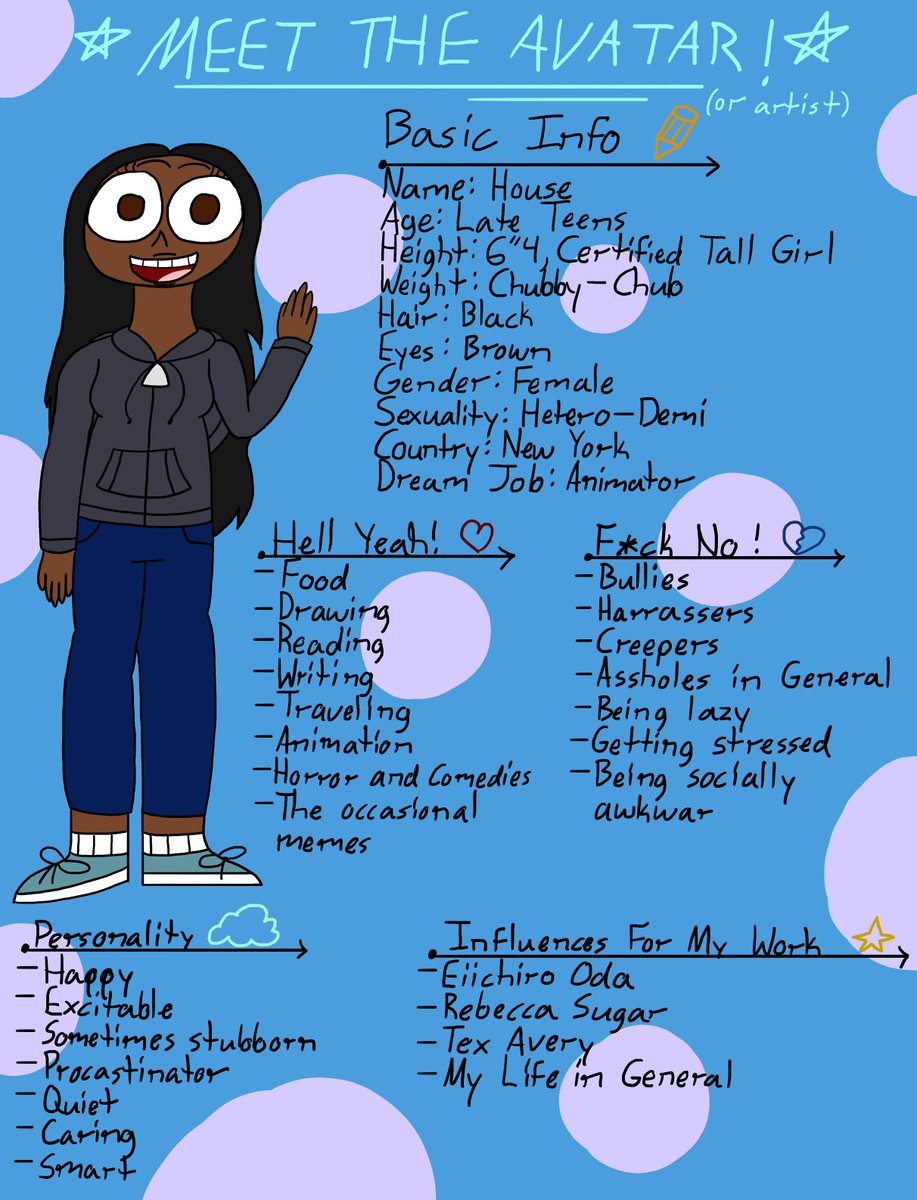 MEET THE AVATAR!
(or artist)
Basic Info
Name: House
Age: Late Teens
Height: 6"4, Certified Tall Girl
Weight: Chubby-Chub
Hair: Black
Eyes: Brown
Gender: Female
Sexuality: Hetero-Demi
Country: New York
Dream Job: Animator
Hell Yeah!
- Food
- Drawing
- Reading
- Writing
- Traveling
- Animation
- Horror and Comedies
- The occasional
memes
F*ck No!
- Bullies
- Harrassers
- Creepers
- Assholes in General
- Being lazy
- Getting stressed
- Being socially
awkwar
Personality
- Happy
- Excitable
- Sometimes stubborn
- Procastinator
- Quiet
- Caring
- Smart
Influences For My Work
- Eiichiro Oda
- Rebecca Sugar
- Tex Avery
- My Life in General